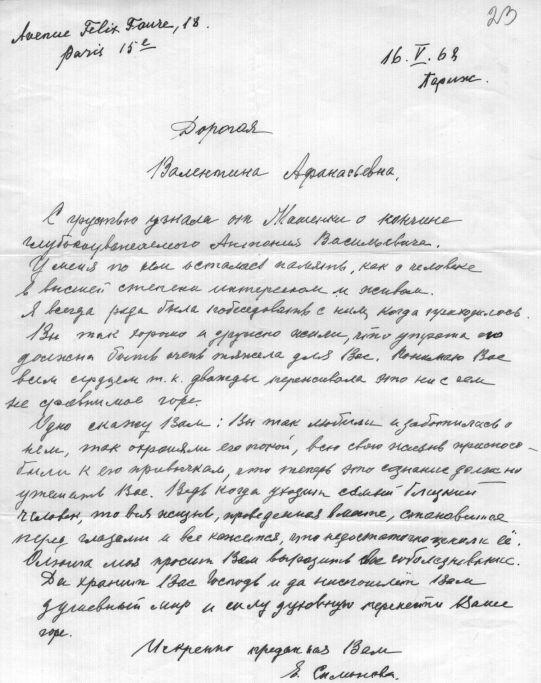 23
Avenue Félix Faure, 18.
Paris 15e
16.V.68
Париж.
Дорогая
Валентина Афанасьевна,
С грустью узнала от Машеньки о кончине
глубокоуважаемого Антония Васильевича.
У меня по нем осталась память, как о человеке
в высшей степени интересном и живом.
Я всегда рада была побеседовать с ним, когда приходилось.
Вы так хорошо и дружно жили, что утрата его
должна быть очень тяжела для Вас. Понимаю Вас
всем сердцем т.к. дважды переживала это ни с чем
не сравнимое горе.
Одно скажу Вам: Вы так любили и заботились о
нем, так охраняли его покой, всю свою жизнь приспосо-
били к его привычкам, что теперь это сознание должно
утешать Вас. Ведь когда уходит самый близкий
человек, то вся жизнь, проведенная вместе, становится
перед глазами и все кажется, что недостаточно ценили её.
моя просит Вам выразить свое соболезнование.
Да хранит Вас Господь и да ниспошлет Вам
душевный мир и силу духовную перенести Ваше
горе.
Искренно преданная Вам
Е. Симонова.